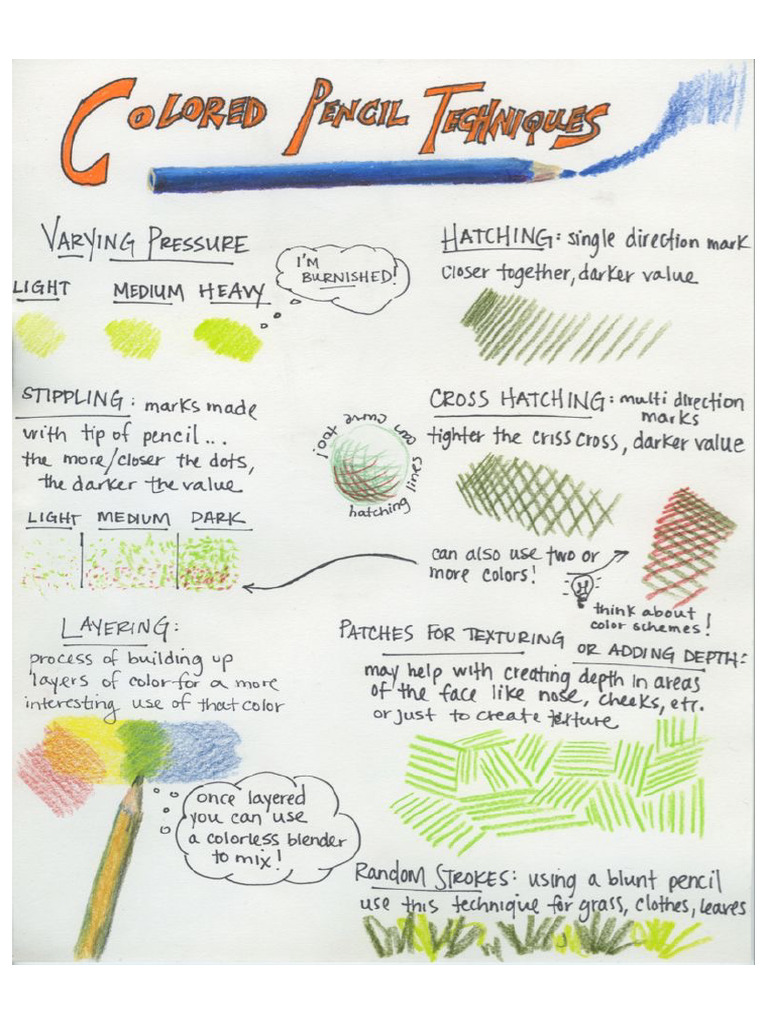 COLORED PENCIL TECHNIQUES
VARYING PRESSURE
I'M
BURNISHED!
LIGHT MEDIUM HEAVY
HATCHING: single direction mark
closer together, darker value
STIPPLING: marks made
with tip of pencil...
the more/closer the dots,
the darker the value
LIGHT MEDIUM DARK
can curve too!
hatching lines
CROSS HATCHING: multi direction
marks
tighter the criss cross, darker value
can also use two or
more colors!
think about
color schemes!
LAYERING:
process of building up
layers of color for a more
interesting use of that color
once layered
you can use
a colorless blender
to mix!
PATCHES FOR TEXTURING OR ADDING DEPTH:
may help with creating depth in areas
of the face like nose, cheeks, etc.
or just to create texture
RANDOM STROKES: using a blunt pencil
use this technique for grass, clothes, leaves